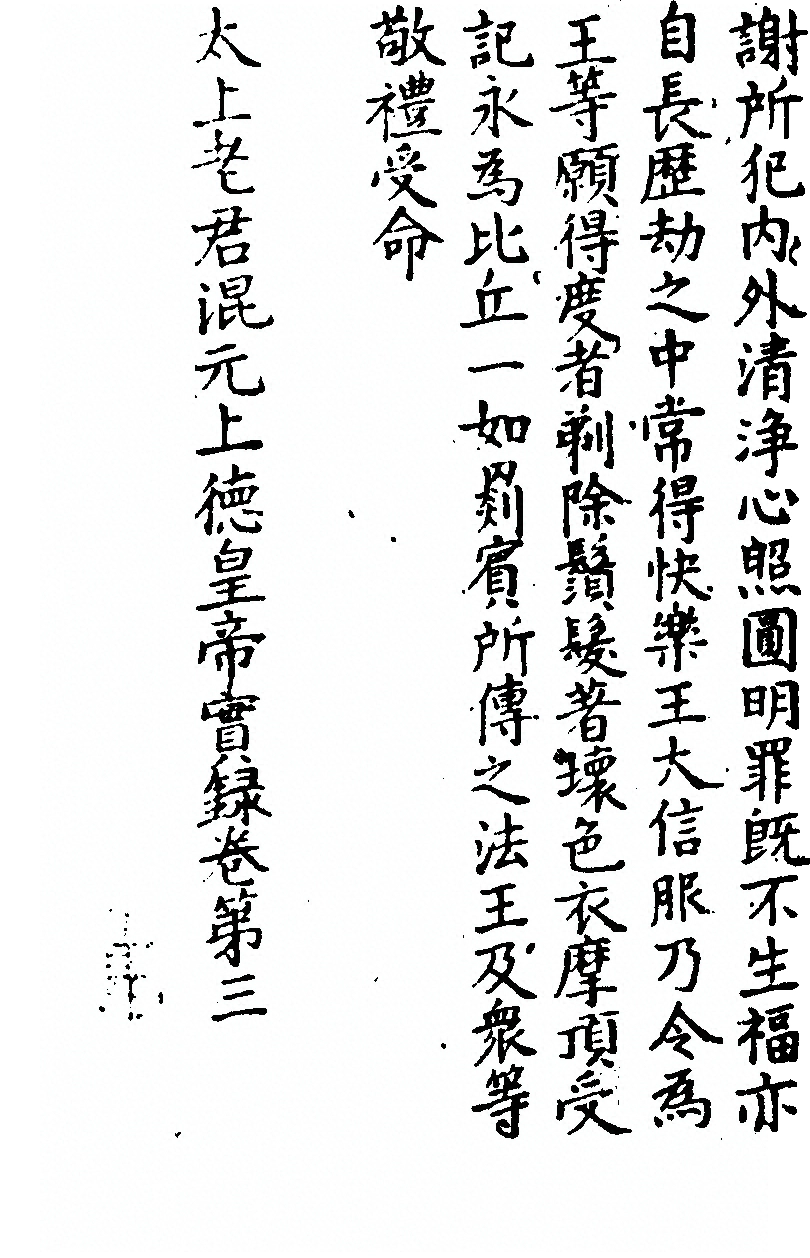 謝所犯内外清淨心照圓明罪既不生福亦
自長歷劫之中常得快樂王大信服乃令為
王等願得度者剃除鬚髮著壞色衣摩頂受
記永為比丘一如罽賓所傳之法王及衆等
敬禮受命
太上老君混元上德皇帝實録卷第三